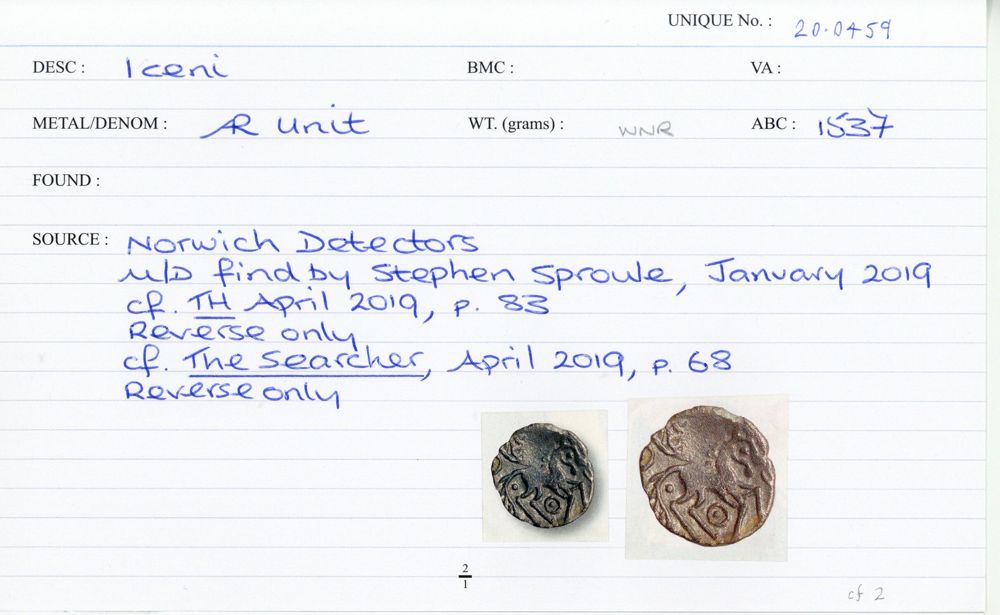 UNIQUE No. : 20.0459
DESC : Iceni BMC : VA :
METAL/DENOM : AR Unit WT. (grams) : WNR ABC : 1537
FOUND :
SOURCE : Norwich Detectors
M/D find by Stephen Sproule, January 2019
cf. TH April 2019, p. 83
Reverse only
cf. The Searcher, April 2019, p. 68
Reverse only
2
1
cf 2